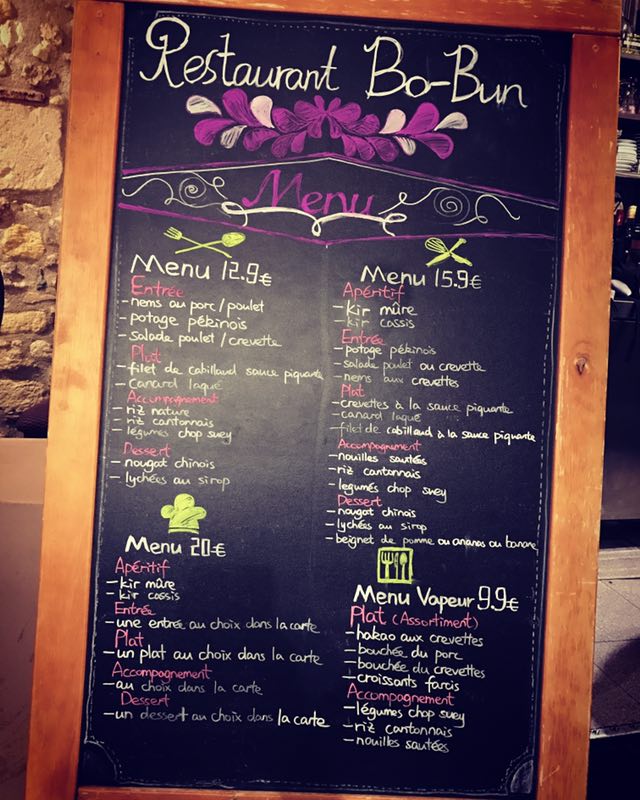 Restaurant Bo-Bun
Menu
Menu 12.9€
Entrée
- nems au porc / poulet
- potage pékinois
- salade poulet / crevette
Plat
- filet de cabillaud sauce piquante
- canard laqué
Accompagnement
- riz nature
- riz cantonnais
- légumes chop suey
Dessert
- nougat chinois
- lychées au sirop
Menu 15.9€
Apéritif
- kir mûre
- kir cassis
Entrée
- potage pékinois
- salade poulet ou crevette
- nems aux crevettes
Plat
- crevettes à la sauce piquante
- canard laqué
- filet de cabillaud à la sauce piquante
Accompagnement
- nouilles sautées
- riz cantonnais
- legumés chop suey
Dessert
- nougat chinois
- lychées au sirop
- beignet de pomme ou ananas ou banane
Menu 20€
Apéritif
- kir mûre
- kir cassis
Entrée
- une entrée au choix dans la carte
Plat
- un plat au choix dans la carte
Accompagnement
- au choix dans la carte
Dessert
- un dessert au choix dans la carte
Menu Vapeur 9.9€
Plat (Assortiment)
- hakao aux crevettes
- bouchée du porc
- bouchée du crevettes
- croissants farcis
Accompagnement
- légumes chop suey
- riz cantonnais
- nouilles sautées